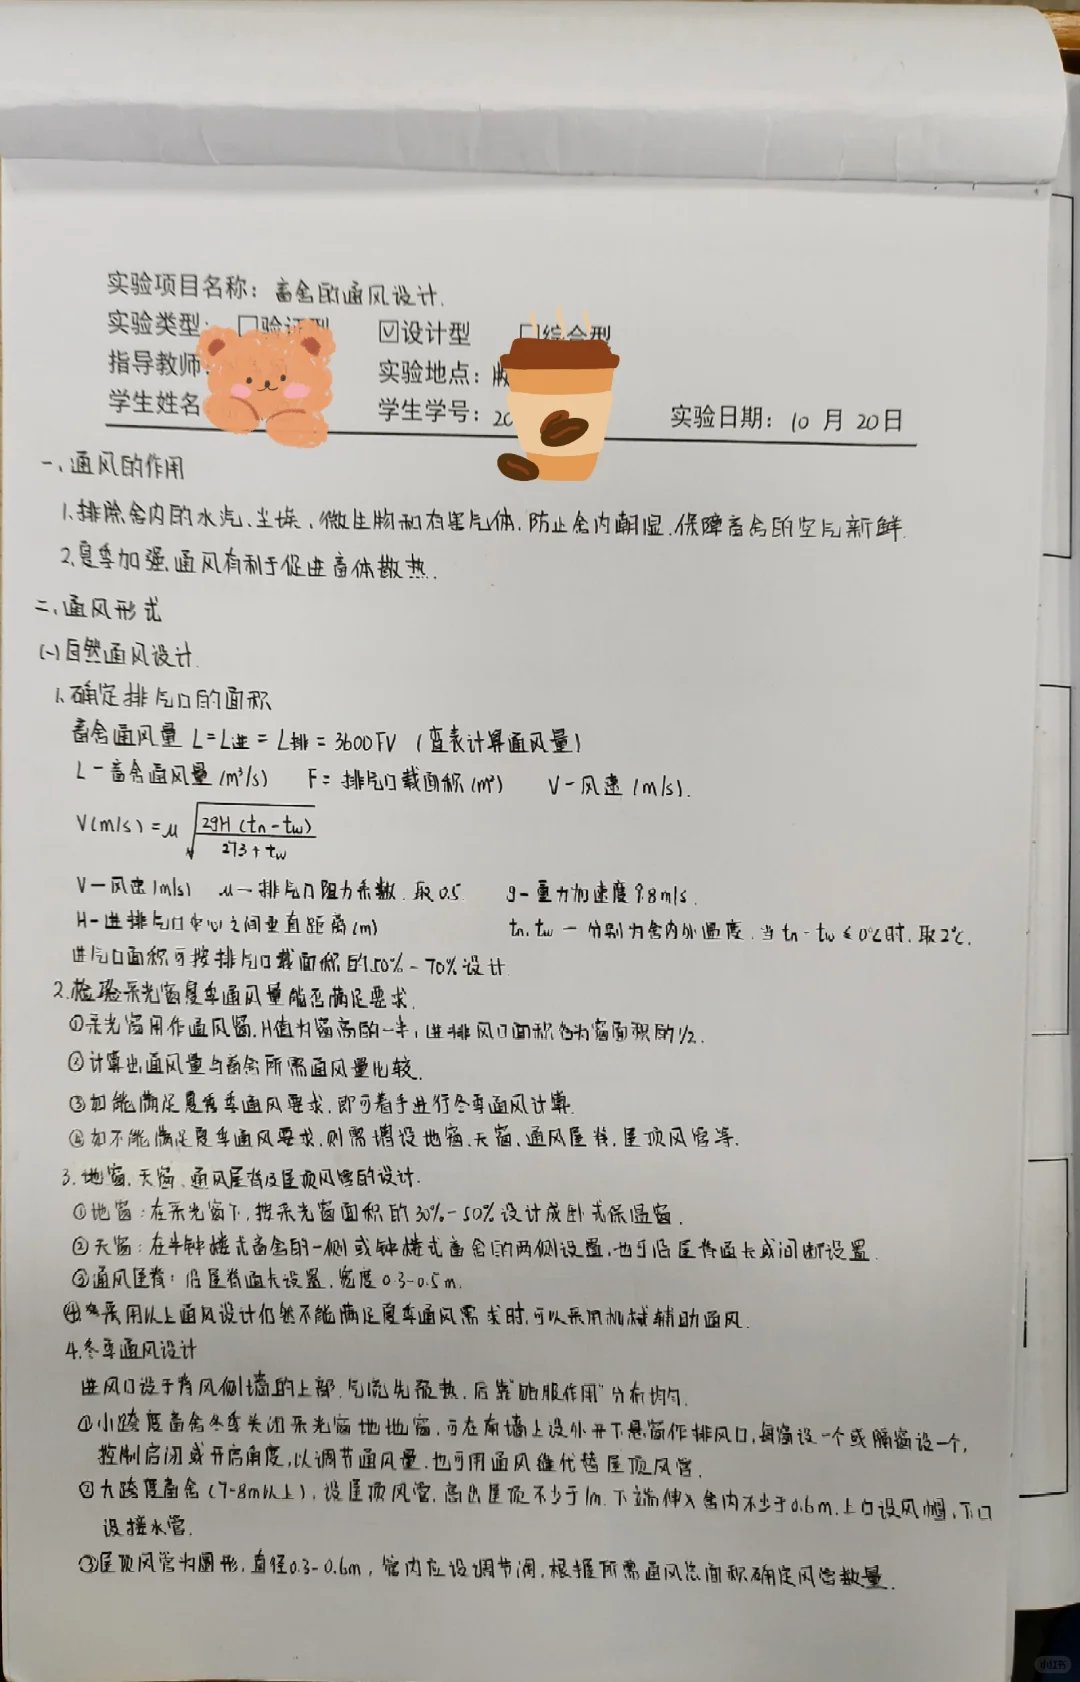 实验项目名称：畜舍的通风设计.
实验类型： 口验证型 ☑设计型 口综合型
指导教师： 实验地点：
学生姓名 学生学号：20 实验日期：10 月 20日
一、通风的作用
1.排除舍内的水汽、尘埃、微生物和有害气体.防止舍内潮湿.保障畜舍的空气新鲜.
2.夏季加强通风有利于促进畜体散热.
二、通风形式
(一)自然通风设计.
1.确定排气口的面积
畜舍通风量 L=L进=L排=3600FV (查表计算通风量)
L-畜舍通风量(m³/s) F=排气口截面积(m²) V-风速(m/s).
V(m/s)=μ√(2gH(tn-tw)/(273+tw))
V-风速(m/s) μ-排气口阻力系数.取0.5 g-重力加速度9.8m/s.
H-进排气口中心之间垂直距离(m) tn.tw-分别为舍内外温度.当tn-tw≤0℃时.取2℃.
进气口面积可按排气口截面积的50%-70%设计
2.检验采光窗夏季通风量能否满足要求.
①采光窗用作通风窗.H值为窗高的一半；进排风口面积各为窗面积的1/2.
②计算出通风量与畜舍所需通风量比较.
③如能满足夏季通风要求.即可着手进行冬季通风计算.
④如不能满足夏季通风要求.则需增设地窗.天窗.通风屋脊.屋顶风管等.
3.地窗.天窗.通风屋脊及屋顶风管的设计.
①地窗：在采光窗下.按采光窗面积的30%-50%设计成卧式保温窗.
②天窗：在半钟楼式畜舍的一侧或钟楼式畜舍的两侧设置.也可沿屋脊通长或间断设置.
③通风屋脊：沿屋脊通长设置.宽度0.3-0.5m.
④采用以上通风设计仍然不能满足夏季通风需求时.可以采用机械辅助通风.
4.冬季通风设计
进风口设于背风侧墙的上部.气流先预热.后靠"吡服作用"分布均匀.
①小跨度畜舍冬季关闭采光窗地地窗.可在南墙上设外开下悬窗作排风口,每窗设一个或隔窗设一个,
控制启闭或开启角度,以调节通风量.也可用通风缝代替屋顶风管.
②大跨度畜舍(7-8m以上),设屋顶风管.高出屋顶不少于1m.下端伸入舍内不少于0.6m.上口设风帽,下口
设接水管.
③屋顶风管为圆形,直径0.3-0.6m,管内应设调节阀,根据所需通风总面积确定风管数量.